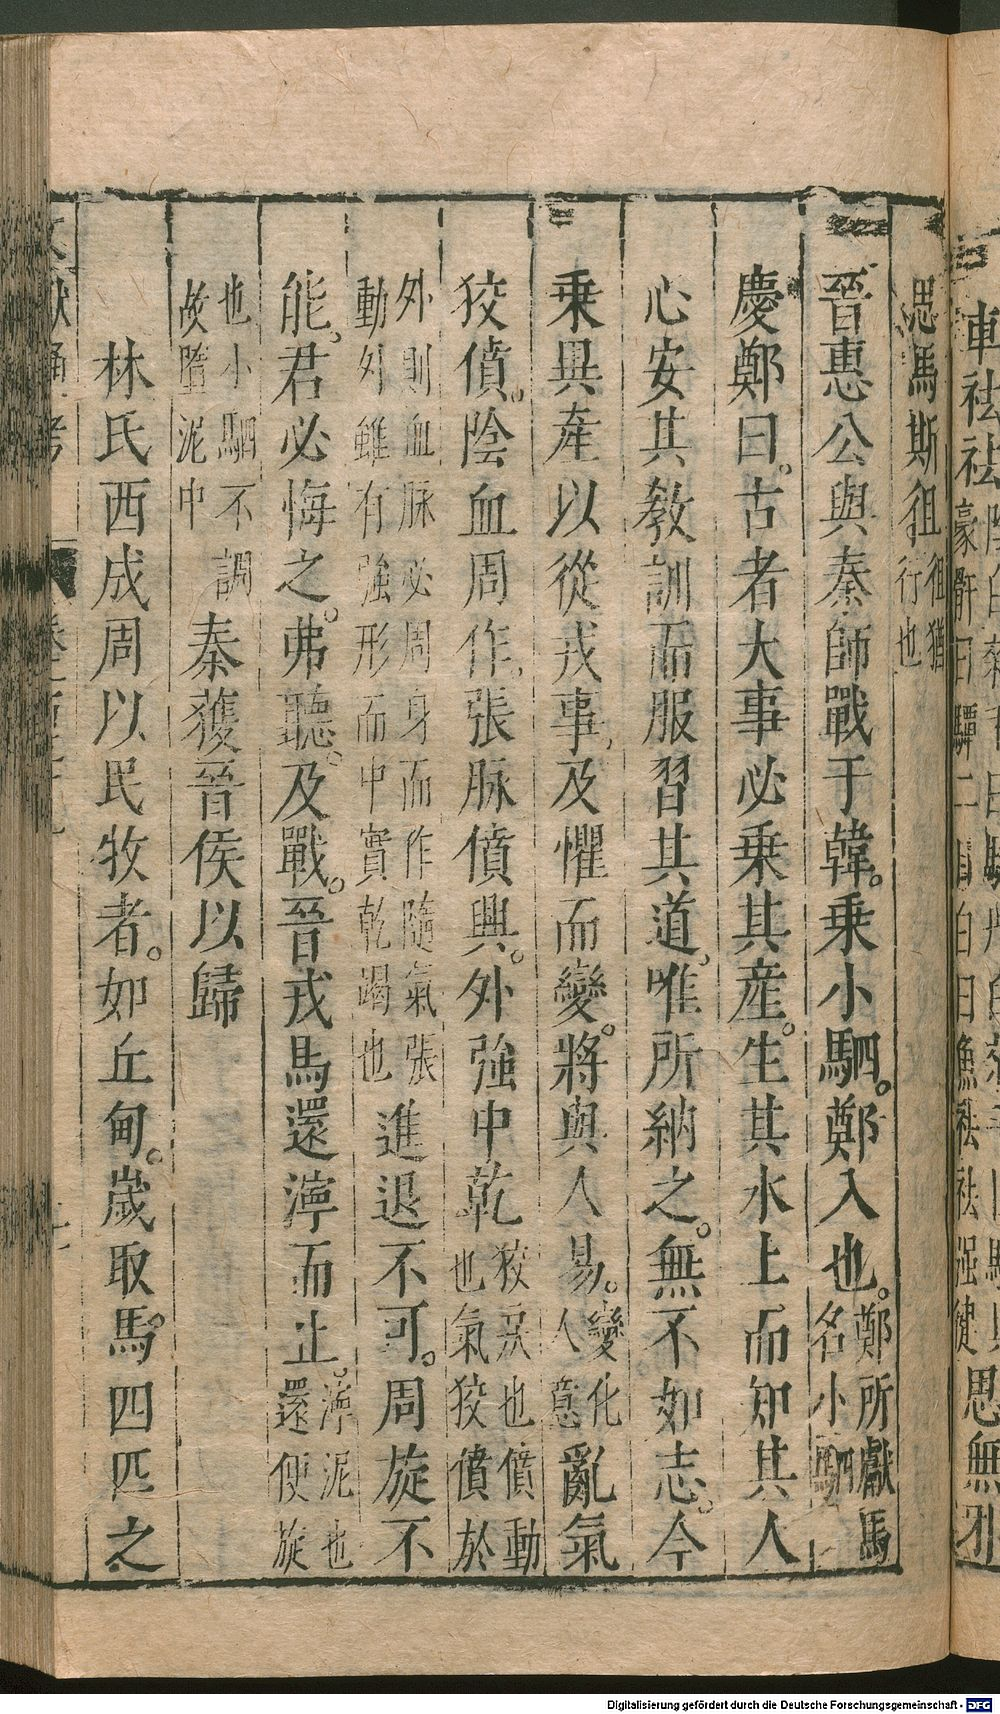 思馬斯徂徂猶行也
晉惠公與秦師戰于韓。乗小駟。鄭入也。鄭所獻馬名小駟
慶鄭曰。古者大事必乗其産。生其水上而知其人
心安其教訓而服習其道。唯所納之。無不如志。今
乗異産以從戎事。及懼而變。將與人易。變化人意亂氣
狡僨。陰血周作。張脉僨興。外強中乾狡戾也僨動也氣狡僨於
外則血脉必周身而作隨氣張動外雖有強形而中實乾竭也進退不可。周旋不
能。君必悔之。弗聽。及戰。晉戎馬還濘而止。濘泥也還便旋
也小駟不調故墮泥中秦獲晉侯以歸
林氏西成周以民牧者。如丘甸。歲取馬。四匹之
Digitalisierung gefördert durch die Deutsche Forschungsgemeinschaft - DFG